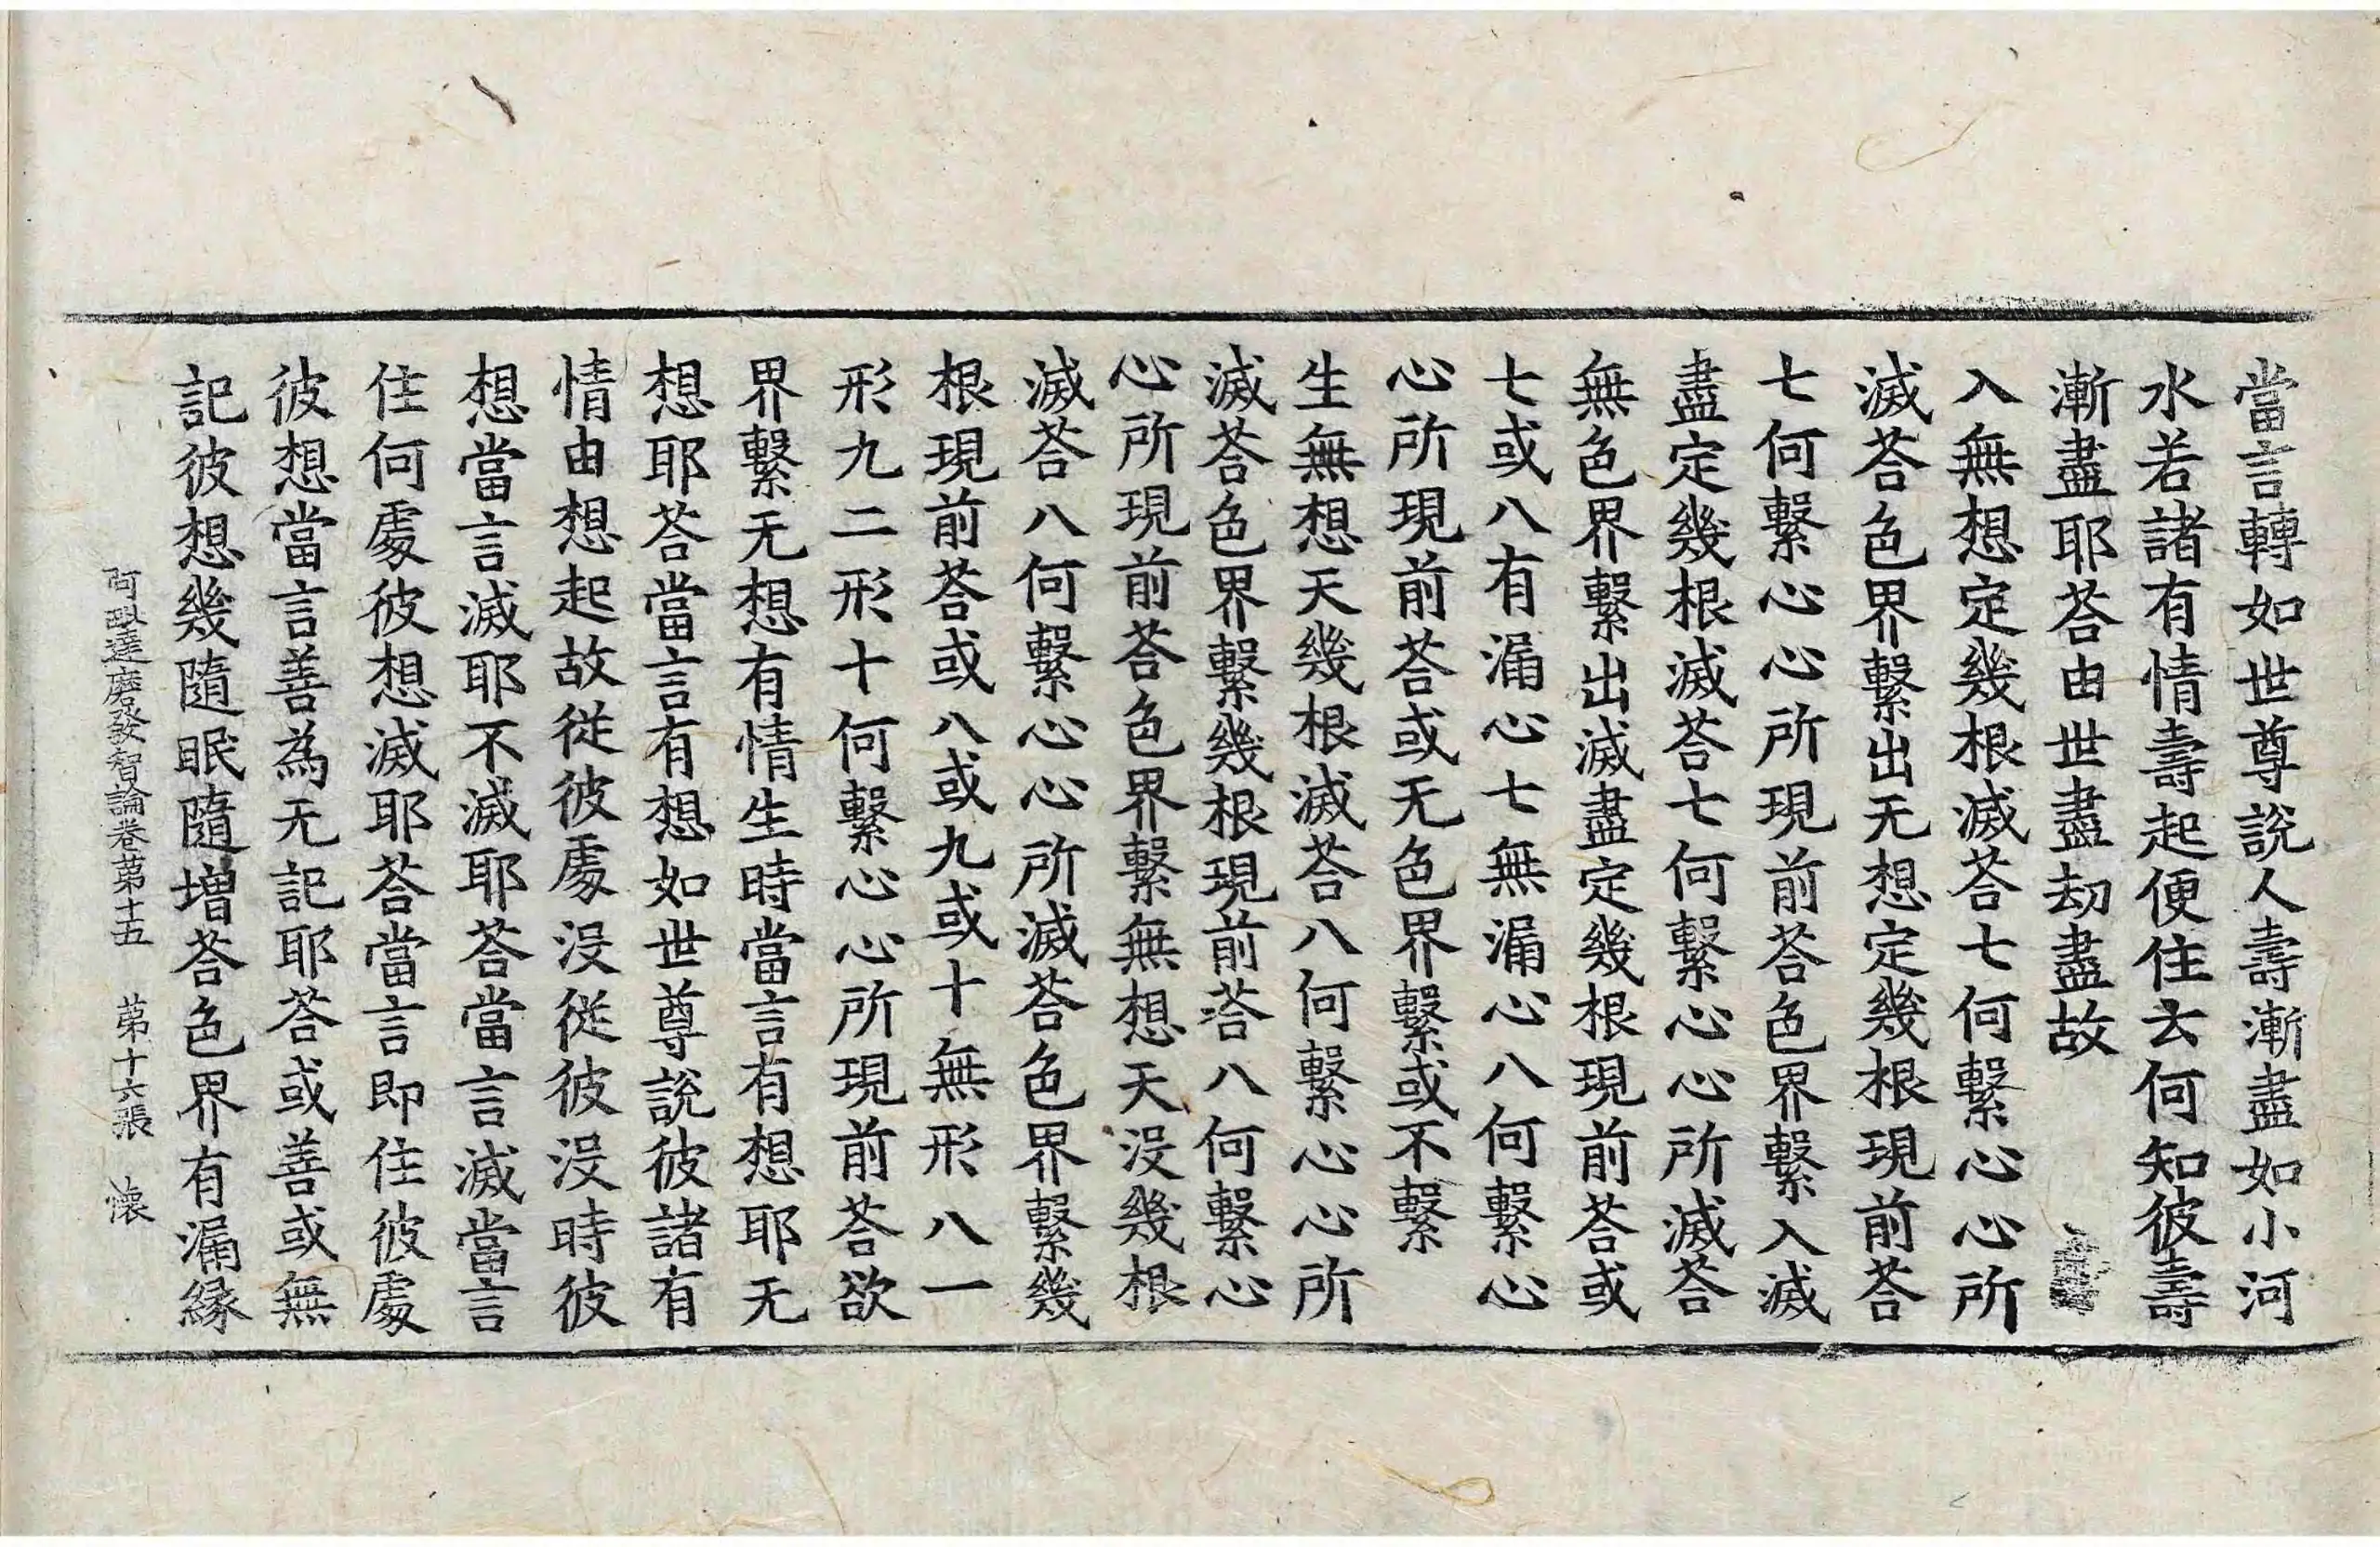 當言轉如世尊說人壽漸盡如小河
水若諸有情壽起便住去何知彼壽
漸盡耶荅由世盡劫盡故
入無想定幾根滅荅七何繫心心所
滅荅色界繫出无想定幾根現前荅
七何繫心心所現前荅色界繫入滅
盡定幾根滅荅七何繫心心所滅荅
無色界繫出滅盡定幾根現前荅或
七或八有漏心七無漏心八何繫心
心所現前荅或无色界繫或不繫
生無想天幾根滅荅八何繫心心所
滅荅色界繫幾根現前荅八何繫心
心所現前荅色界繫無想天没幾根
滅荅八何繫心心所滅荅色界繫幾
根現前荅或八或九或十無形八一
形九二形十何繫心心所現前荅欲
界繫无想有情生時當言有想耶无
想耶荅當言有想如世尊說彼諸有
情由想起故從彼處没從彼没時彼
想當言滅耶不滅耶荅當言滅當言
住何處彼想滅耶荅當言即住彼處
彼想當言善為无記耶荅或善或無
記彼想幾隨眠隨增荅色界有漏緣
阿毗達磨發智論卷第十五 第十六張 懷